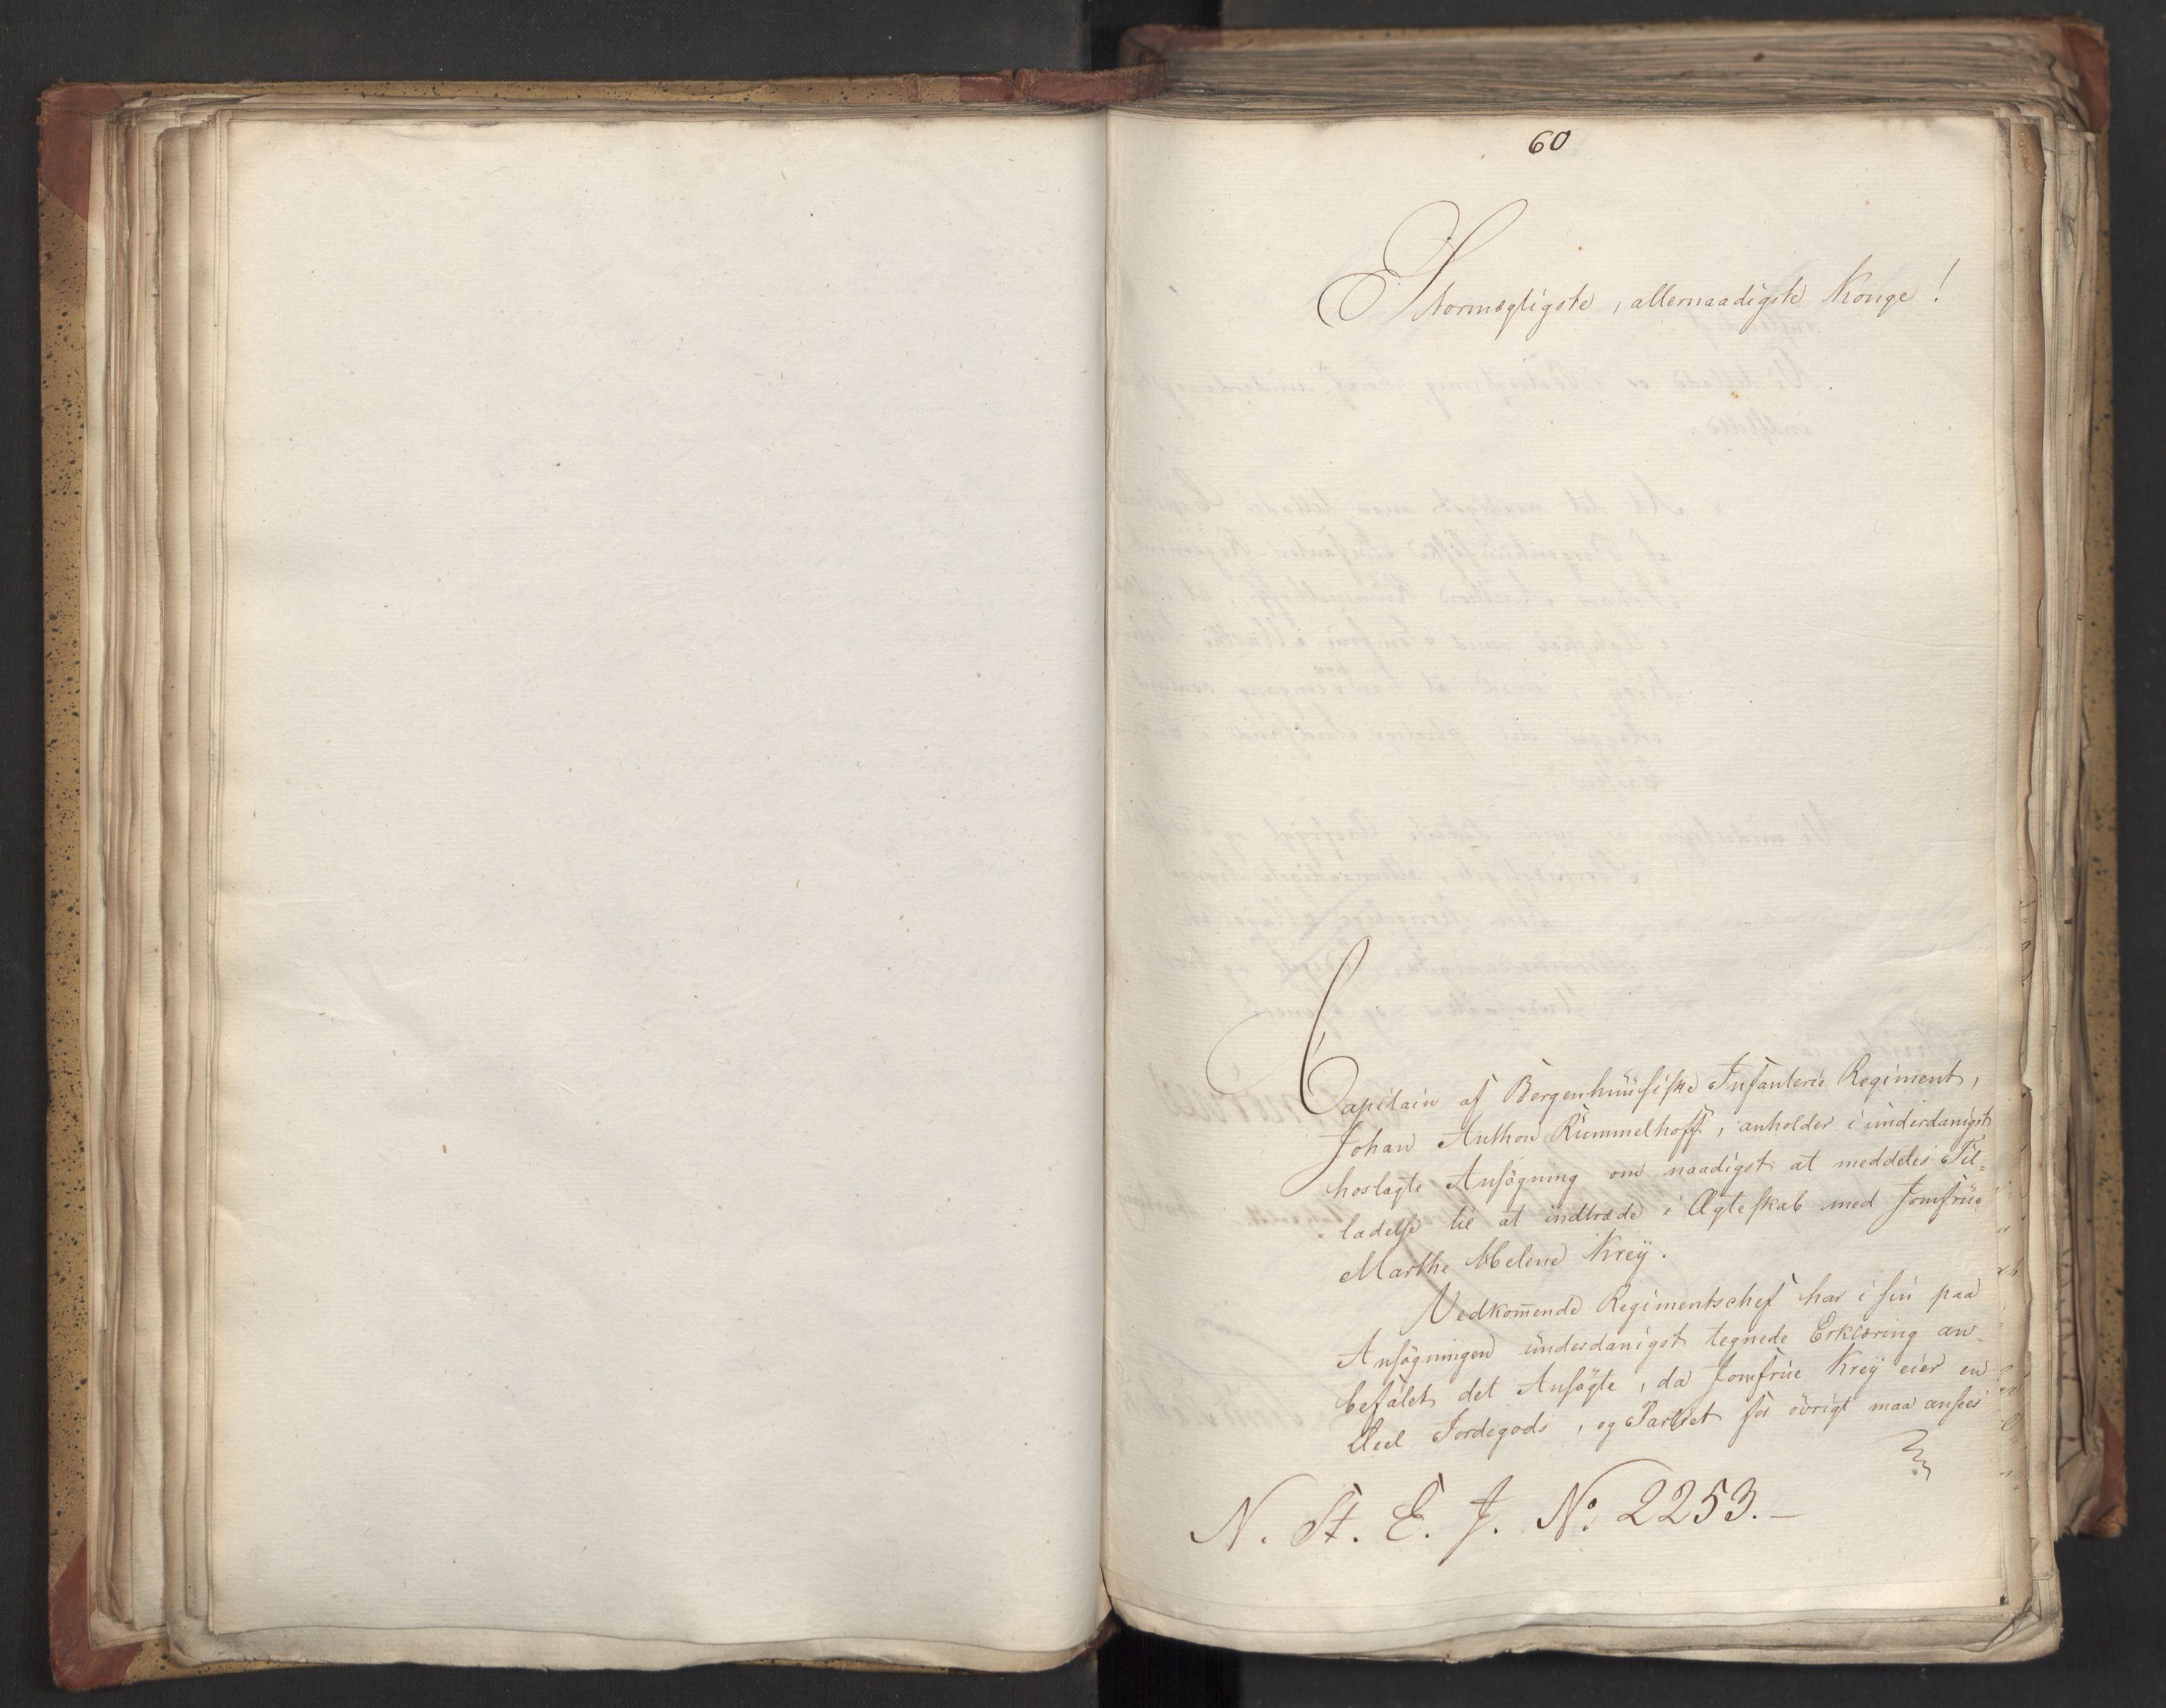 60
Stormægtigste, allernaadigste Konge!
Capitain af Bergenhuusiske Infanterie Regiment,
Johan Anthon Rummelhoff, anholder i underdanigst
hoslagte Ansøgning om naadigst at meddeles Til-
ladelse til at indtræde i Ægteskab med Jomfrue
Marthe Helene Kreÿ.
Vedkom̅ende Regimentschef har i sin paa
Ansøgningen underdanigst tegnede Erklæring an-
befalet det Ansøgte, da Jomfrue Kreÿ eier en
Deel Jordegods, og Partiet for övrigt maa ansees
N. St. E. J. No. 2253.-